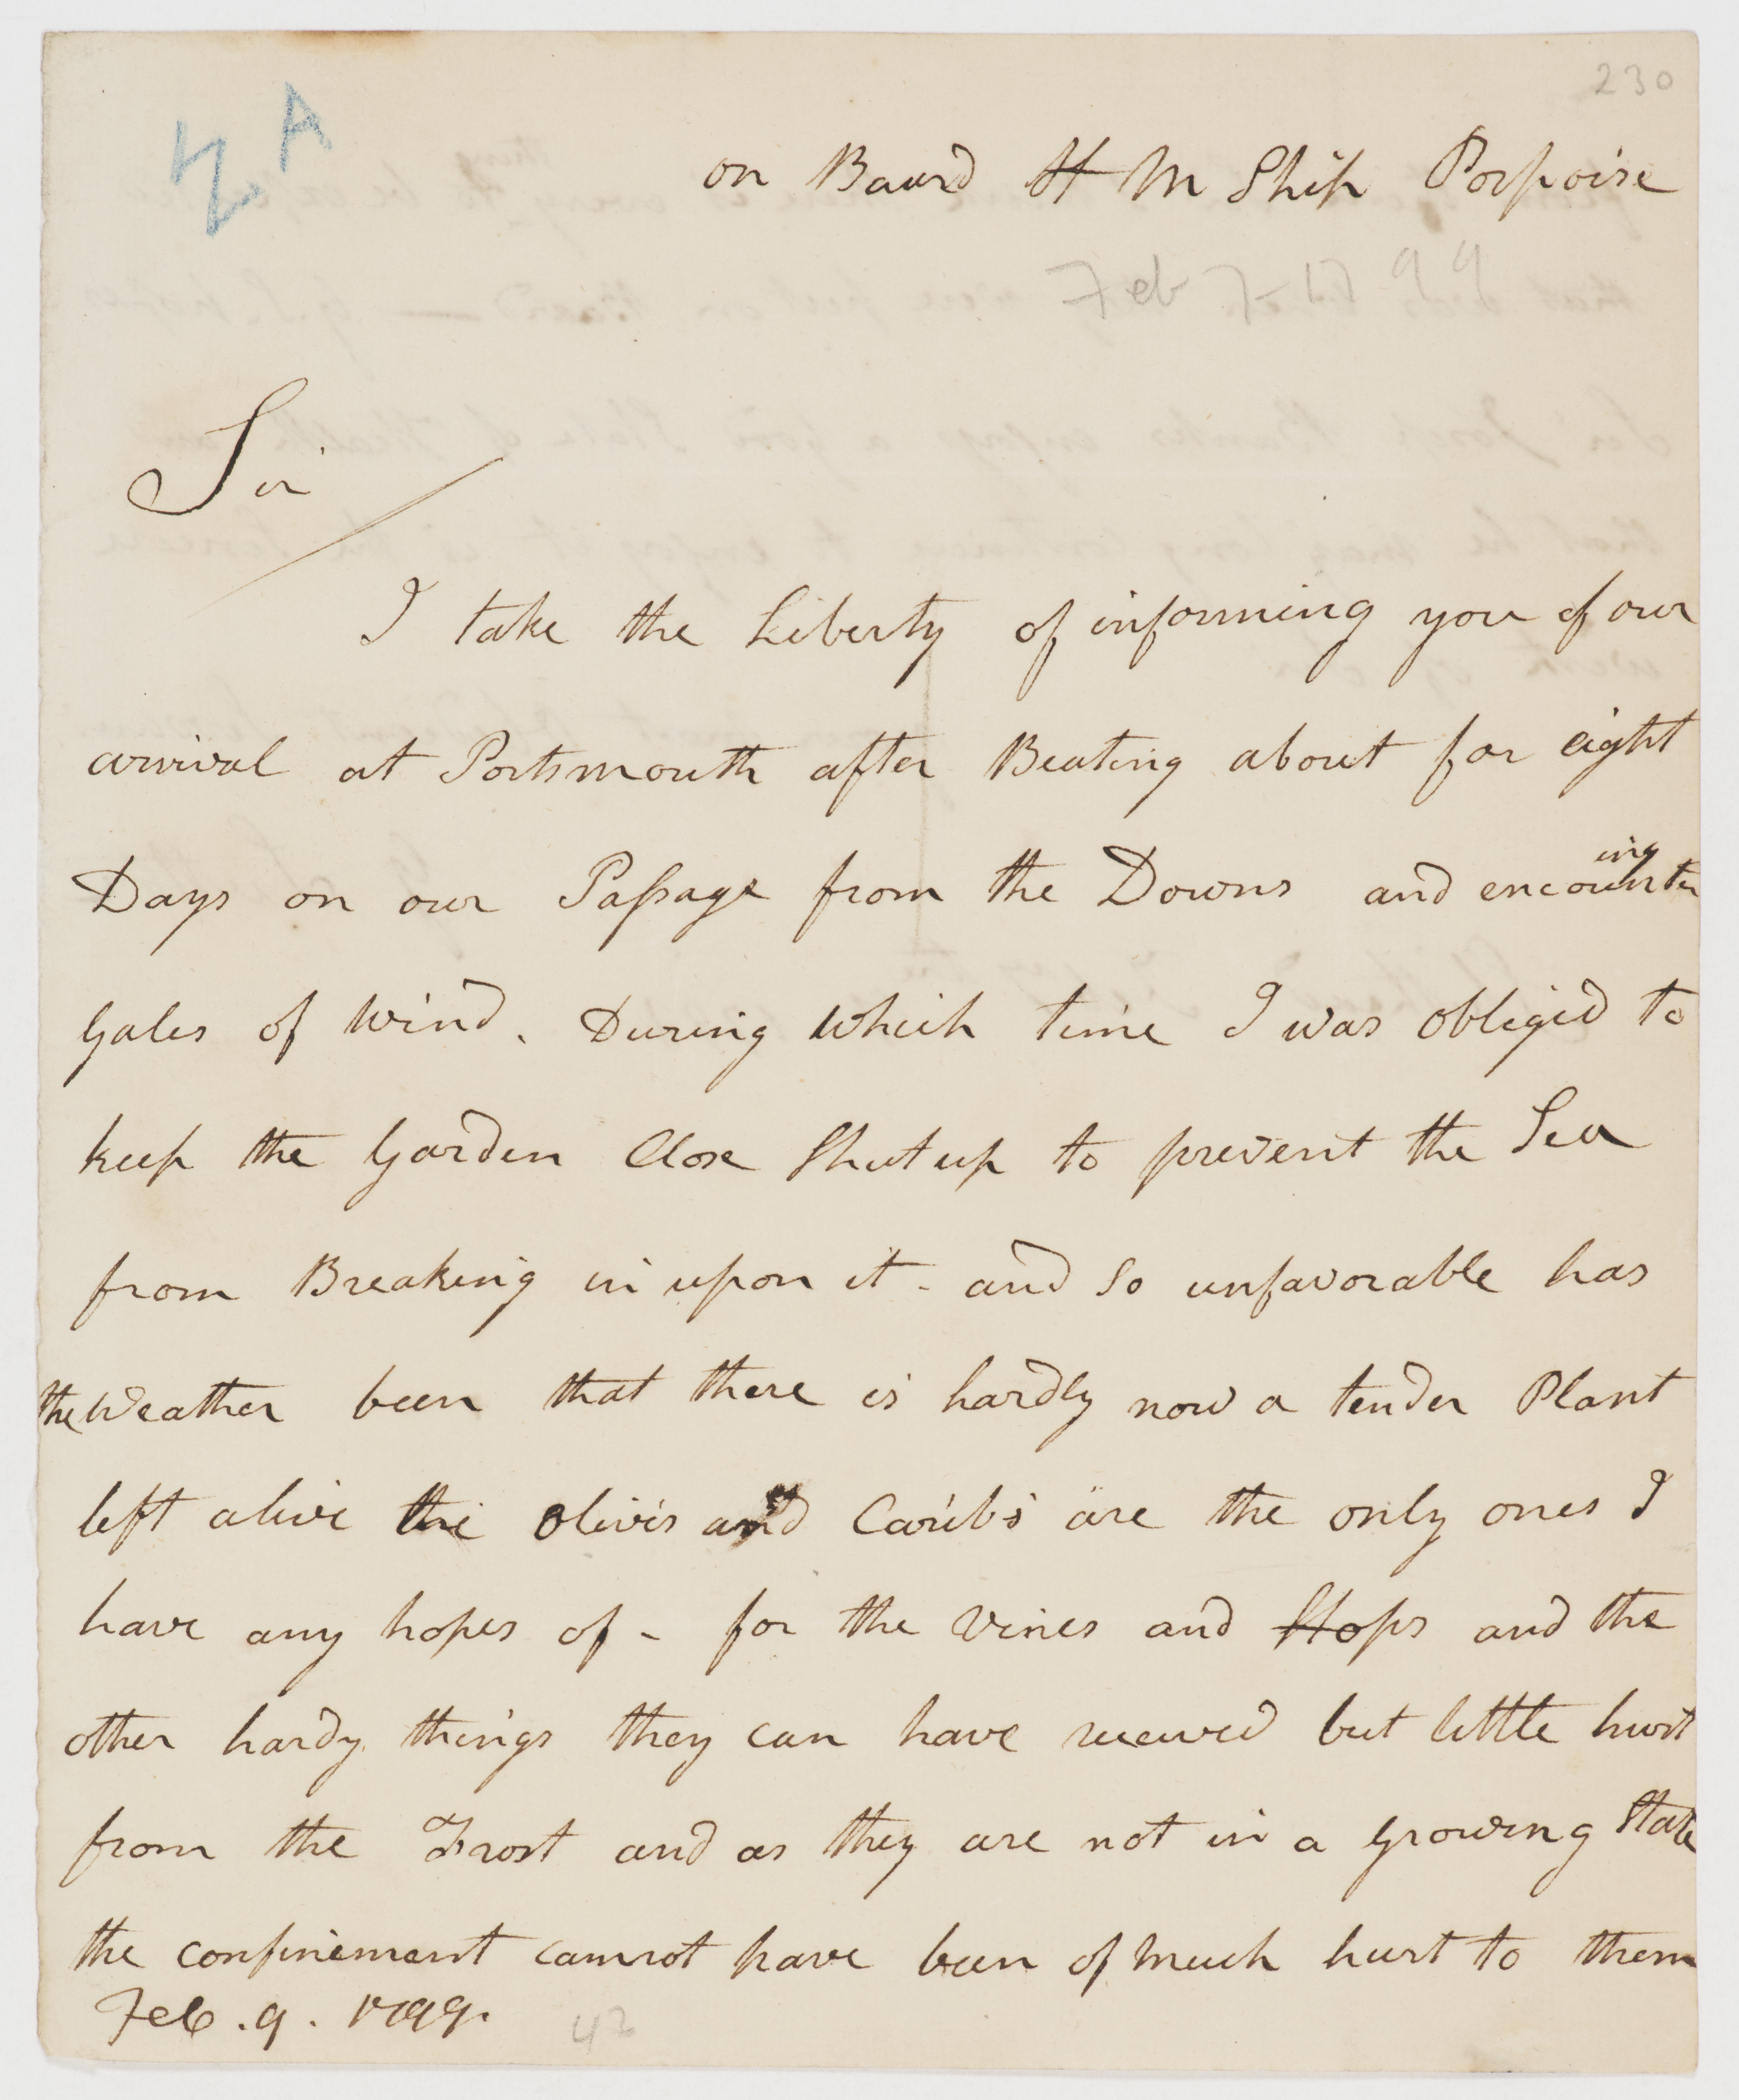 230
ZA
on Baurd H M Ship Porpoise
Feb 7-1799
Sir
I take the Liberty of informing you of our
arrival at Portsmouth after Beating about for eight
Days on our Passage from the Downs and encounter
ing
Gales of Wind. During which time I was obliged to
keep the Garden Close Shut up to prevent the Sea
from Breaking in upon it - and So unfavorable has
the Weather been that there is hardly now a tender Plant
left alive the Olives and Carib's are the only ones I
have any hopes of - for the Vines and Hops and the
other hardy things they can have received but little hurt
from the Frost and as they are not in a growing State
the confinement cannot have been of much hurt to them
Feb. 9. 1799.
42